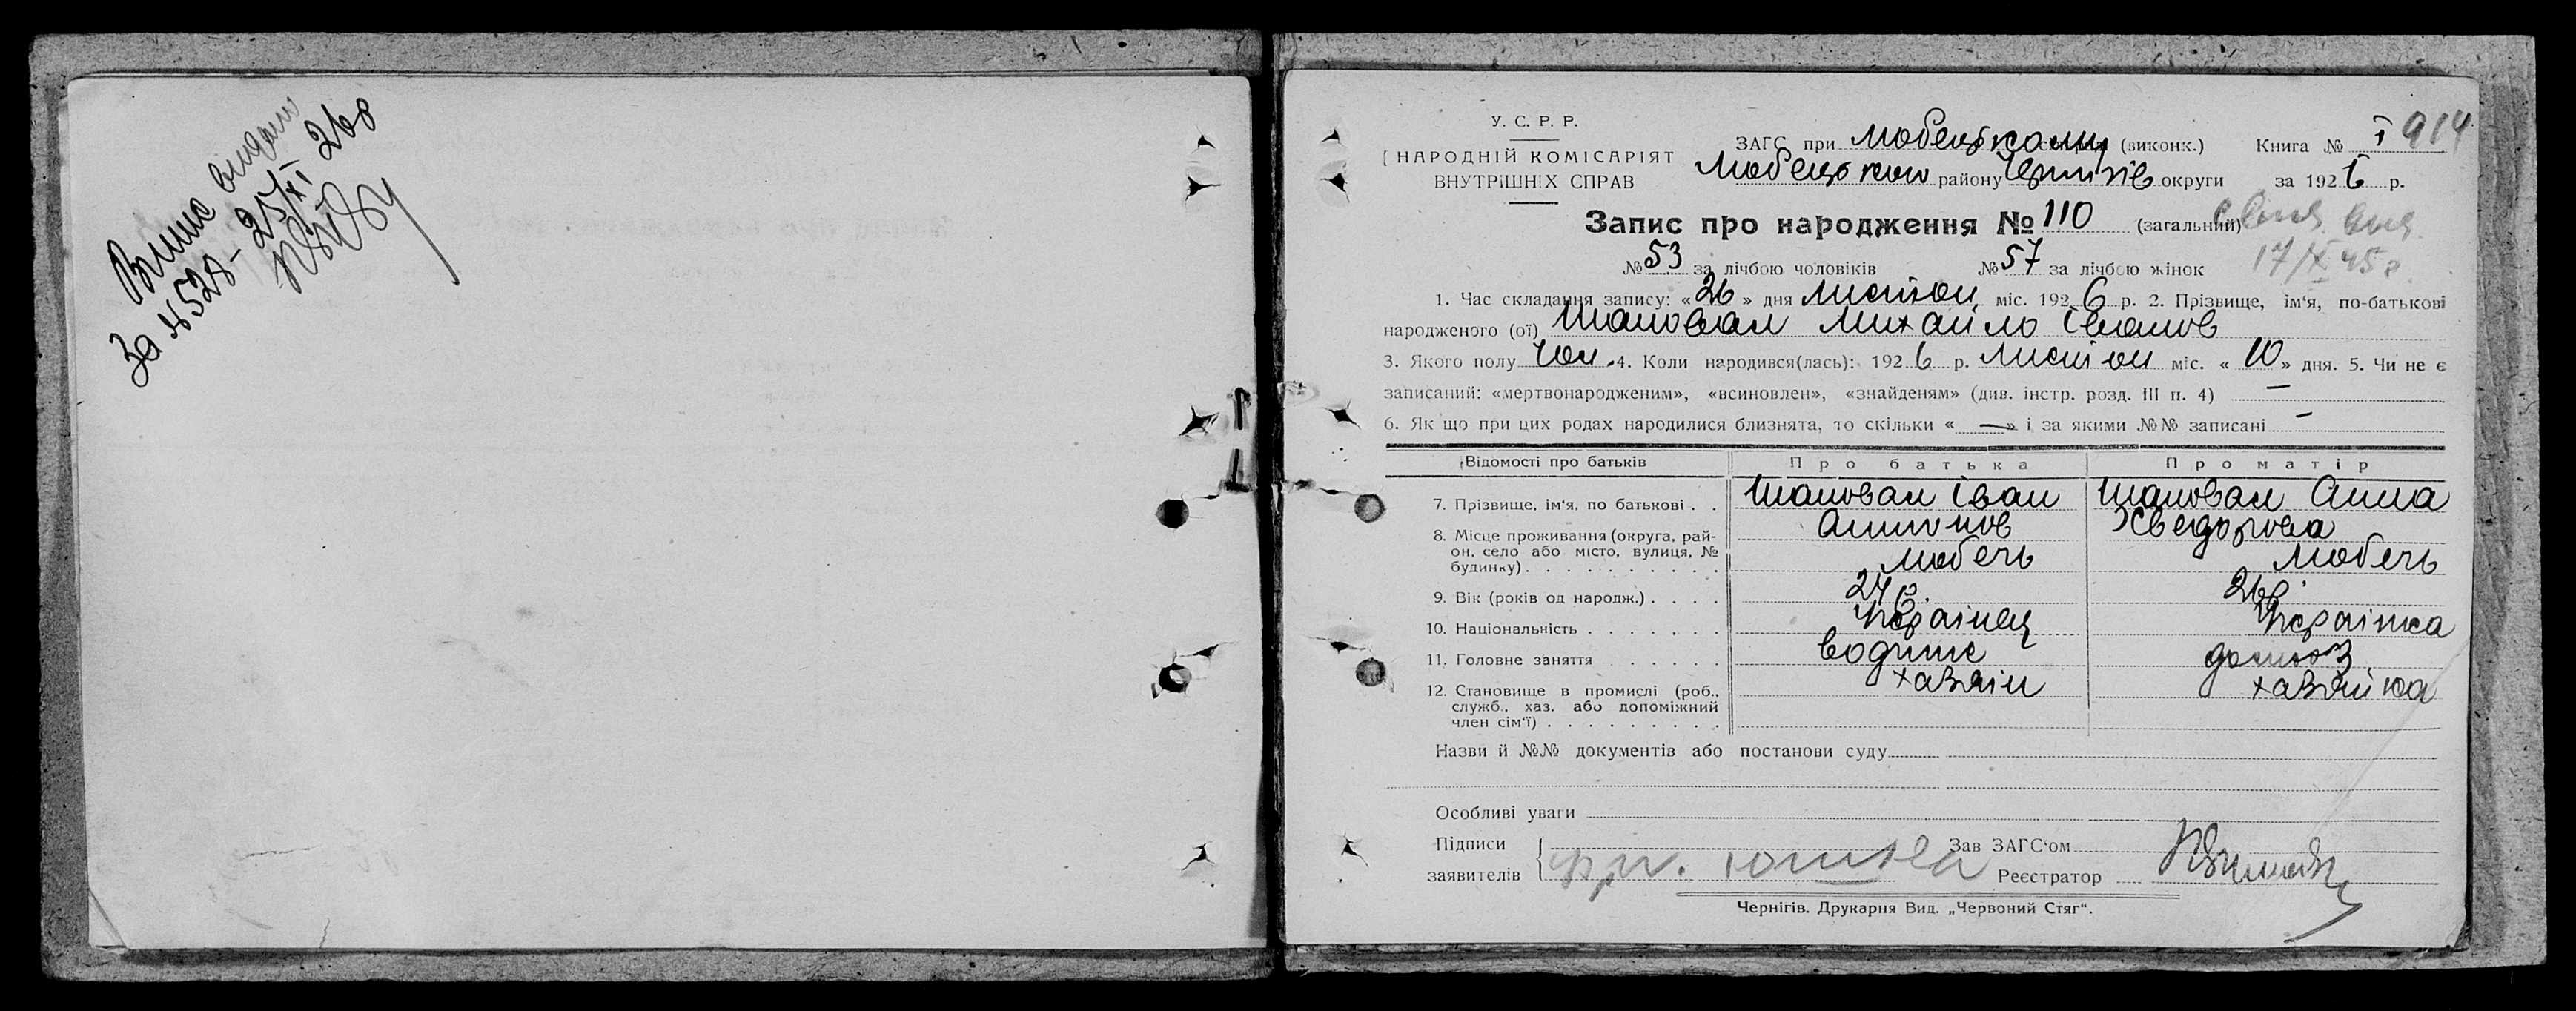 Випис видано
За № 528 – 25/XI 26 р
У. С. Р. Р.
НАРОДНІЙ КОМІСАРІЯТ
ВНУТРІШНІХ СПРАВ
ЗАГС при Любецьком (виконк.)
Любецького району Чернігів округи
Книга № I 914
за 1926 р.
Запис про народження № 110 (загальний)
№ 53 за лічбою чоловіків № 57 за лічбою жінок
17/X 45 г
1. Час складання запису: « 26 » дня листоп міс. 192 6 р. 2. Прізвище, ім‘я, по-батькові
народженого (ої) Шаповал Михайло Іванов
3. Якого полу Чол. 4. Коли народився(лась): 192 6 р. листоп міс. « 10 » дня. 5. Чи не є
записаний: «мертвонародженим», «всиновлен», «знайденям» (див. інстр. розд. III п. 4) —
6. Як що при цих родах народилися близнята, то скільки « — » і за якими №№ записані —
Відомості про батьків Про батька Про матір
7. Прізвище, ім‘я, по батькові . . Шаповал Іван Шаповал Анна
Антонов Хведорова
8. Місце проживання (округа, рай-
он, село або місто, вулиця, №
будинку) . . . . . . . . . . Любечь Любечь
9. Вік (років од народж.) . . . . 24 р. 26 р.
10. Національність . . . . . . . Українец Українка
11. Головне заняття . . . . . водник
12. Становище в промислі (роб.,
служб., хаз. або допоміжний
член сім‘ї) . . . . . . . . . хазяін хазяйка
Назви й №№ документів або постанови суду
Особливі уваги
Підписи
заявителів
Зав ЗАГС‘ом
Реєстратор
Чернігів. Друкарня Вид. „Червоний Стяг“.